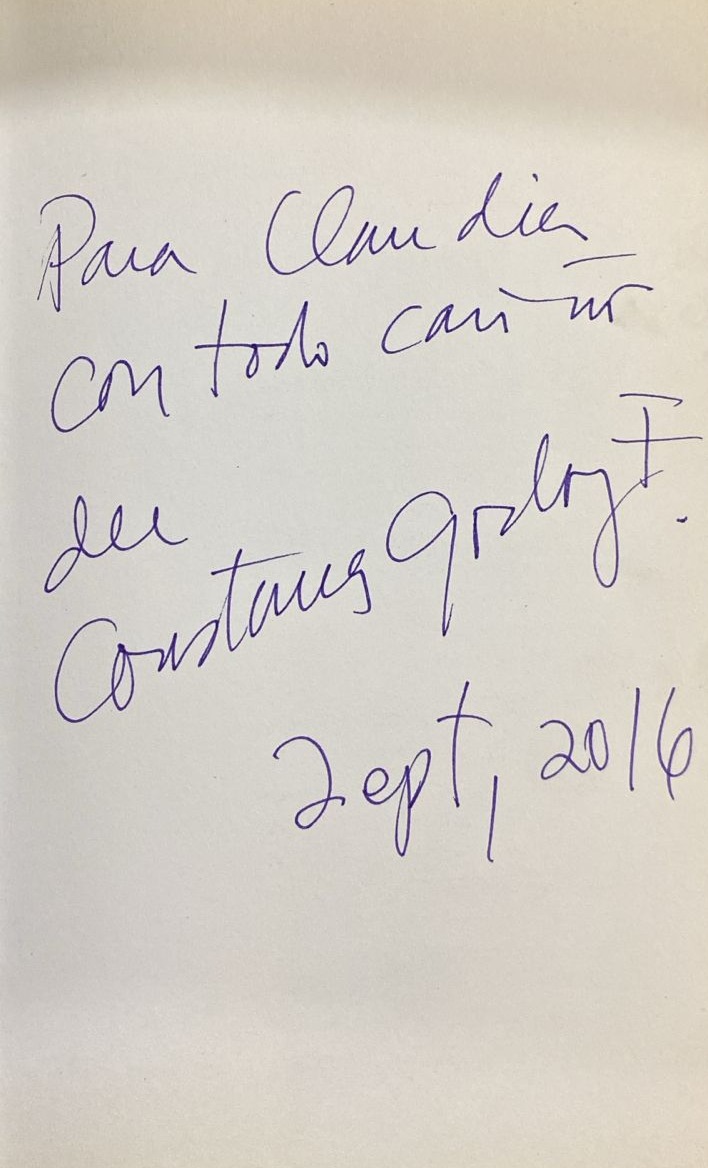 Para Claudia
con todo cariño
de
Constanza Godoy F.
Sept, 2016